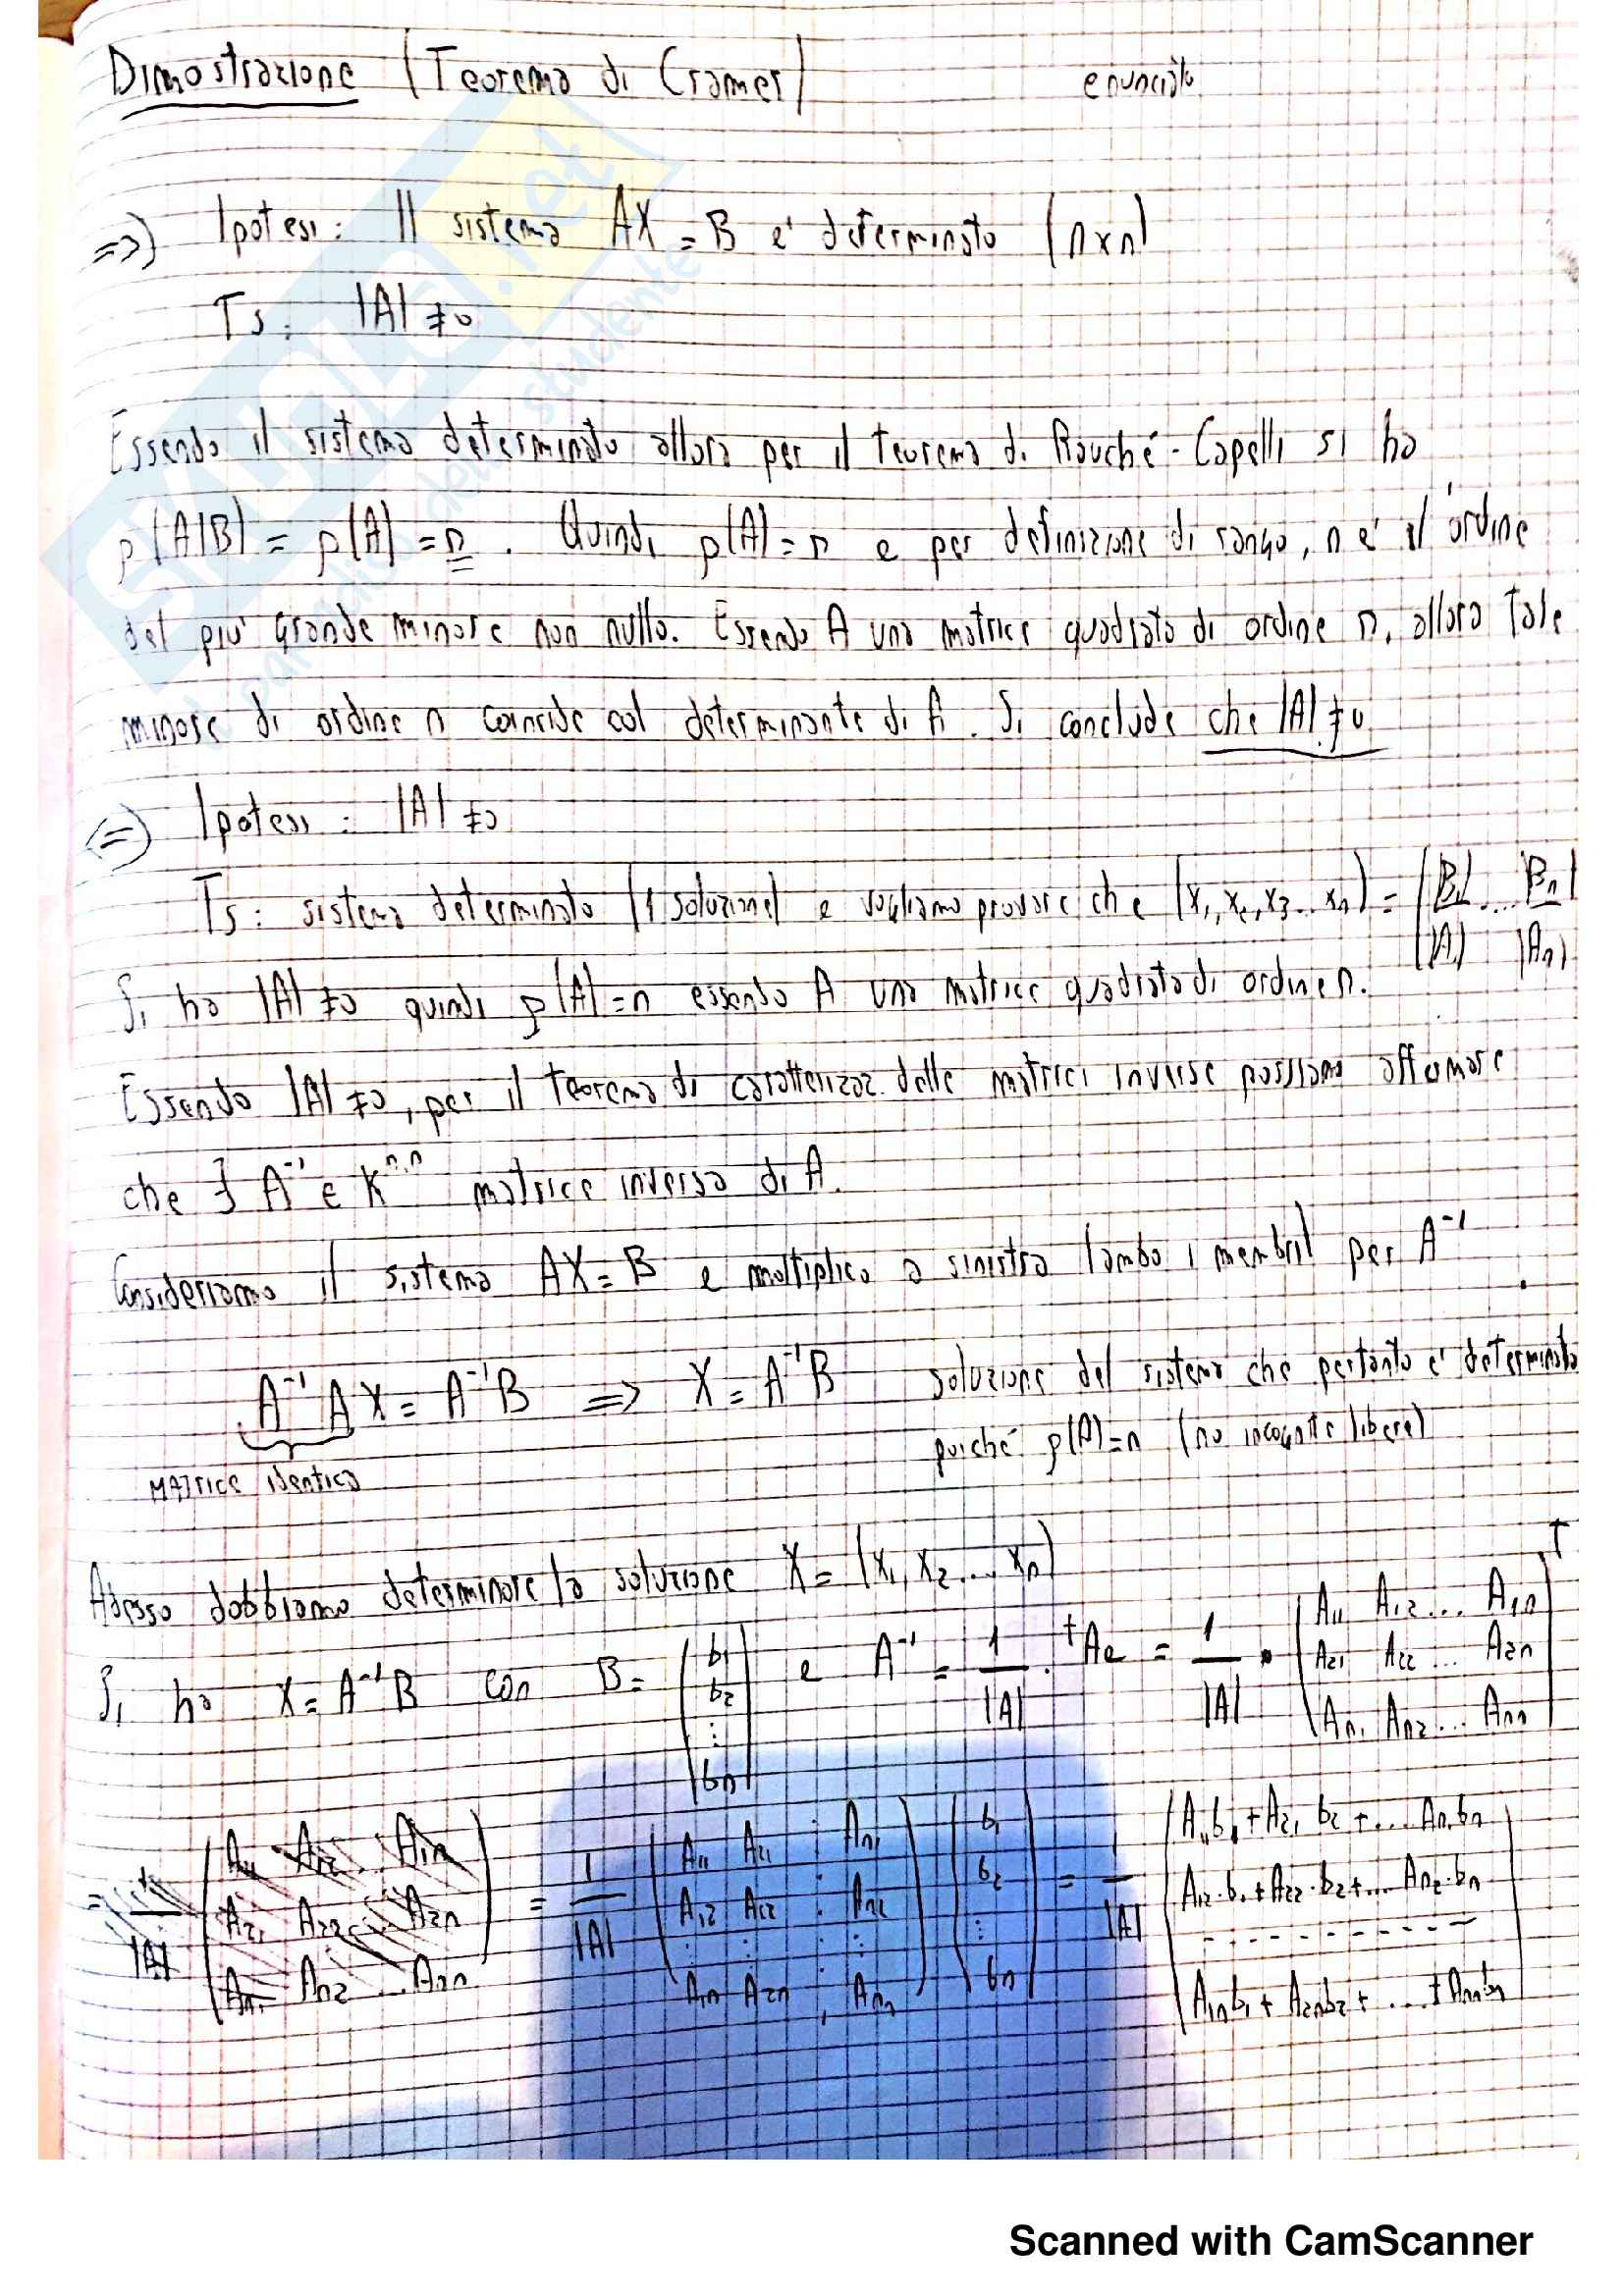 Dimostrazione (Teorema di Cramer) enunciato
=>) Ipotesi: Il sistema AX = B è determinato (n x n)
Ts: |A| ≠ 0
Essendo il sistema determinato allora per il teorema di Rouché-Capelli si ha
ρ(A|B) = ρ(A) = n. Quindi ρ(A) = n e per definizione di rango, n è l'ordine
del più grande minore non nullo. Essendo A una matrice quadrata di ordine n, allora tale
minore di ordine n coincide col determinante di A. Si conclude che |A| ≠ 0
<=) Ipotesi: |A| ≠ 0
Ts: sistema determinato (1 soluzione) e vogliamo provare che (x₁, x₂, x₃... xₙ) = (|B₁|/|A| ... |Bₙ|/|Aₙ|)
Si ha |A| ≠ 0 quindi ρ(A) = n essendo A una matrice quadrata di ordine n.
Essendo |A| ≠ 0, per il teorema di caratterizzaz. delle matrici inverse possiamo affermare
che ∃ A⁻¹ ∈ Kⁿ,ⁿ matrice inversa di A.
Consideriamo il sistema AX = B e moltiplico a sinistra (ambo i membri) per A⁻¹.
A⁻¹AX = A⁻¹B => X = A⁻¹B soluzione del sistema che pertanto è determinato
poiché ρ(A) = n (no incognite libere)
MATrice identica
Adesso dobbiamo determinare la soluzione X = (x₁, x₂ ..., xₙ)
Si ha X = A⁻¹B con B = (b₁ b₂ ⋮ bₙ) e A⁻¹ = 1/|A| · ᵗAe = 1/|A| · (A₁₁ A₁₂ ... A₁ₙ A₂₁ A₂₂ ... A₂ₙ Aₙ₁ Aₙ₂ ... Aₙₙ)ᵀ
= 1/|A| (A₁₁ A₁₂ ... A₁ₙ A₂₁ A₂₂ ... A₂ₙ Aₙ₁ Aₙ₂ ... Aₙₙ) = 1/|A| (A₁₁ A₂₁ ⋮ Aₙ₁ A₁₂ A₂₂ ⋮ Aₙ₂ ⋮ ⋮ ⋮ ⋮ A₁ₙ A₂ₙ ⋮ Aₙₙ) (b₁ b₂ ⋮ bₙ) = 1/|A| (A₁₁b₁ + A₂₁ b₂ + ... Aₙ₁bₙ A₁₂·b₁ + A₂₂·b₂ + ... Aₙ₂·bₙ ---------- A₁ₙb₁ + A₂ₙb₂ + ... + Aₙₙbₙ)
SKUOLA.net
il paradiso dello studente
Scanned with CamScanner